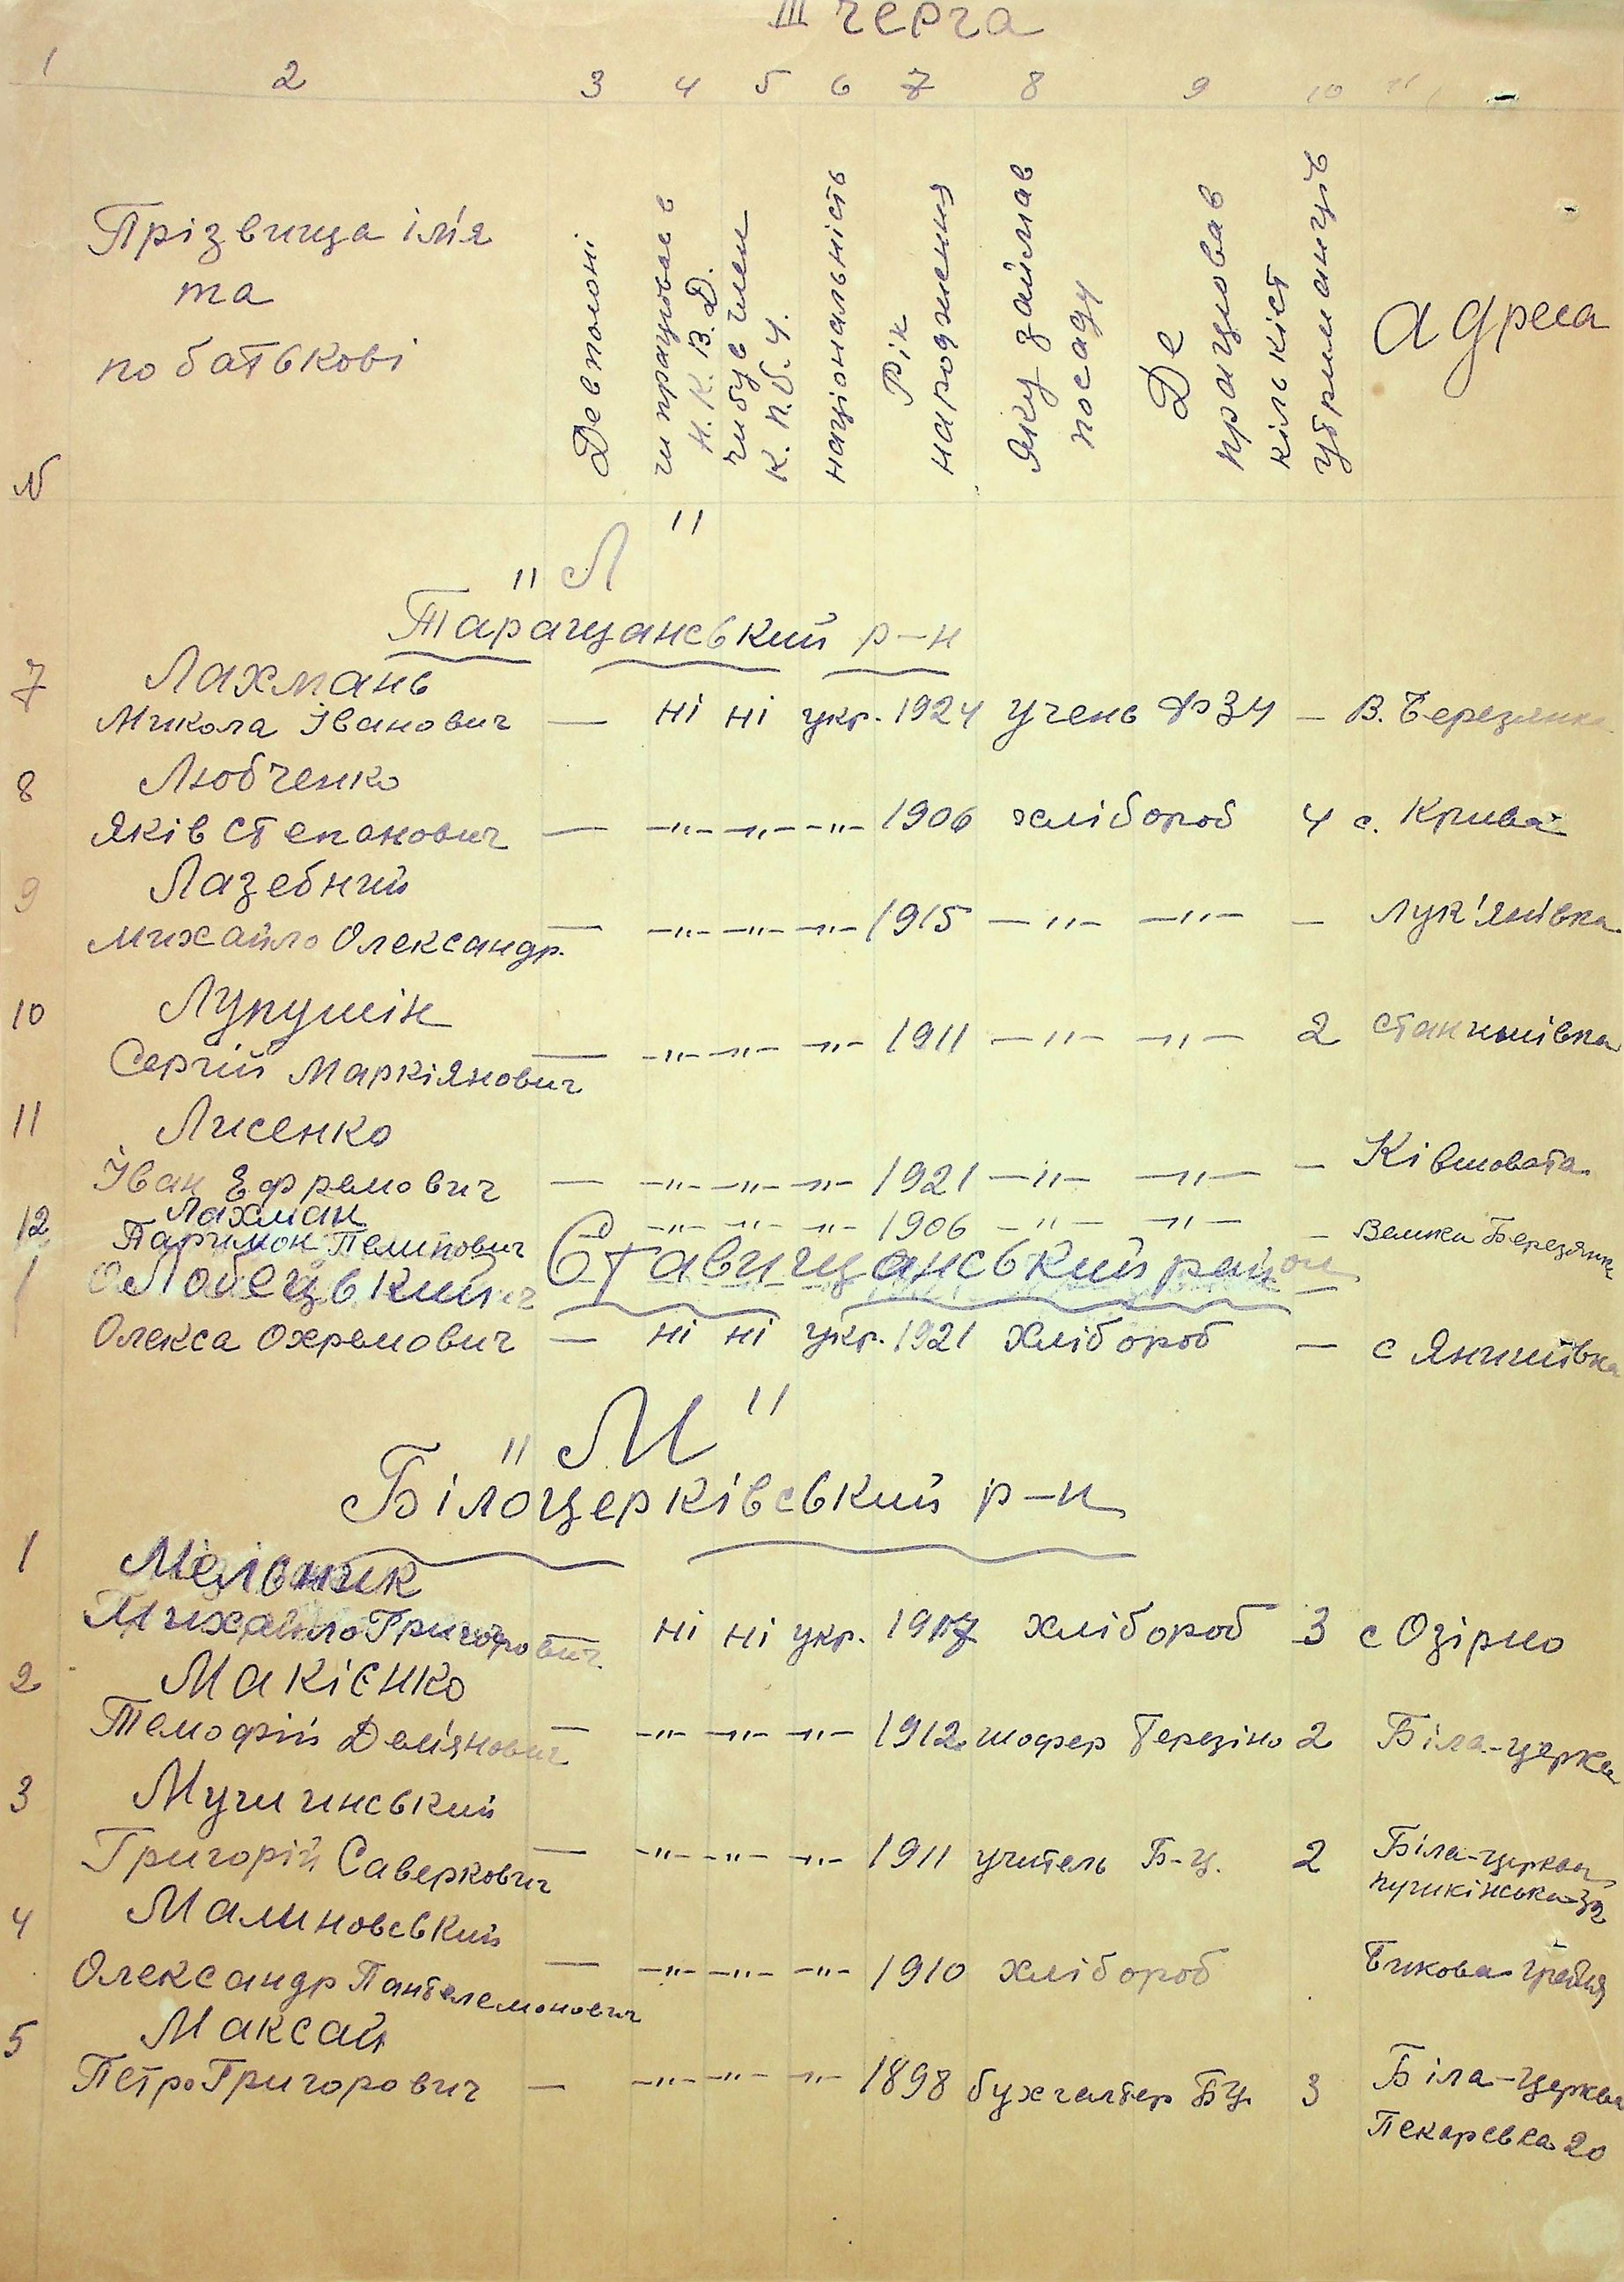 III черга
1 2 3 4 5 6 7 8 9 10 11
N
Прізвища ім'я
та
по батькові
Де в полоні
чи працював в
Н.К.В.Д.
чи був член
К.П.б.У.
національність
Рік
народження
Яку займав
посаду
Де
працював
кількіст
утриманців
адреса
"Л"
Таращанський р-н
7 Лахмань
Микола Іванович — ні ні укр. 1924 учень ФЗУ — В. Березянка
8 Любченко
Яків Степанович — —"— —"— —"— 1906 хлібороб 4 с. Крива
9 Лазебний
Михайло Олександр. — —"— —"— —"— 1915 —"— —"— — Лук'янівка
10 Лупушін
Сергій Маркіянович — —"— —"— —"— 1911 —"— —"— 2 Станишівка
11 Лисенко
Іван Ефремович — —"— —"— —"— 1921 —"— —"— — Ківшовата
12 Лахман
Паримон Пелипович —"— —"— —"— 1906 —"— —"— — Велика Березянк
Ставищанський район
1 Лобецький —
Олекса Охремович — ні ні укр. 1921 хлібороб — с Янишівка
"М"
Білоцерківський р-н
1 Мельник
Михайло Григорович — ні ні укр. 1917 хлібороб 3 с Озірно
2 Макієнко
Темофій Дем'янович — —"— —"— —"— 1912 шофер Терезіно 2 Біла-церква
3 Мучичнський
Григорій Саверкович — —"— —"— —"— 1911 учитель Б-Ц. 2 Біла-церква
пушкінська 32
4 Малиновський
Олександр Пантелемонович — —"— —"— —"— 1910 хлібороб Бикова гребля
5 Максай
Петро Григорович — —"— —"— —"— 1898 бухгалтер БЦ 3 Біла-церква
Пекарська 20